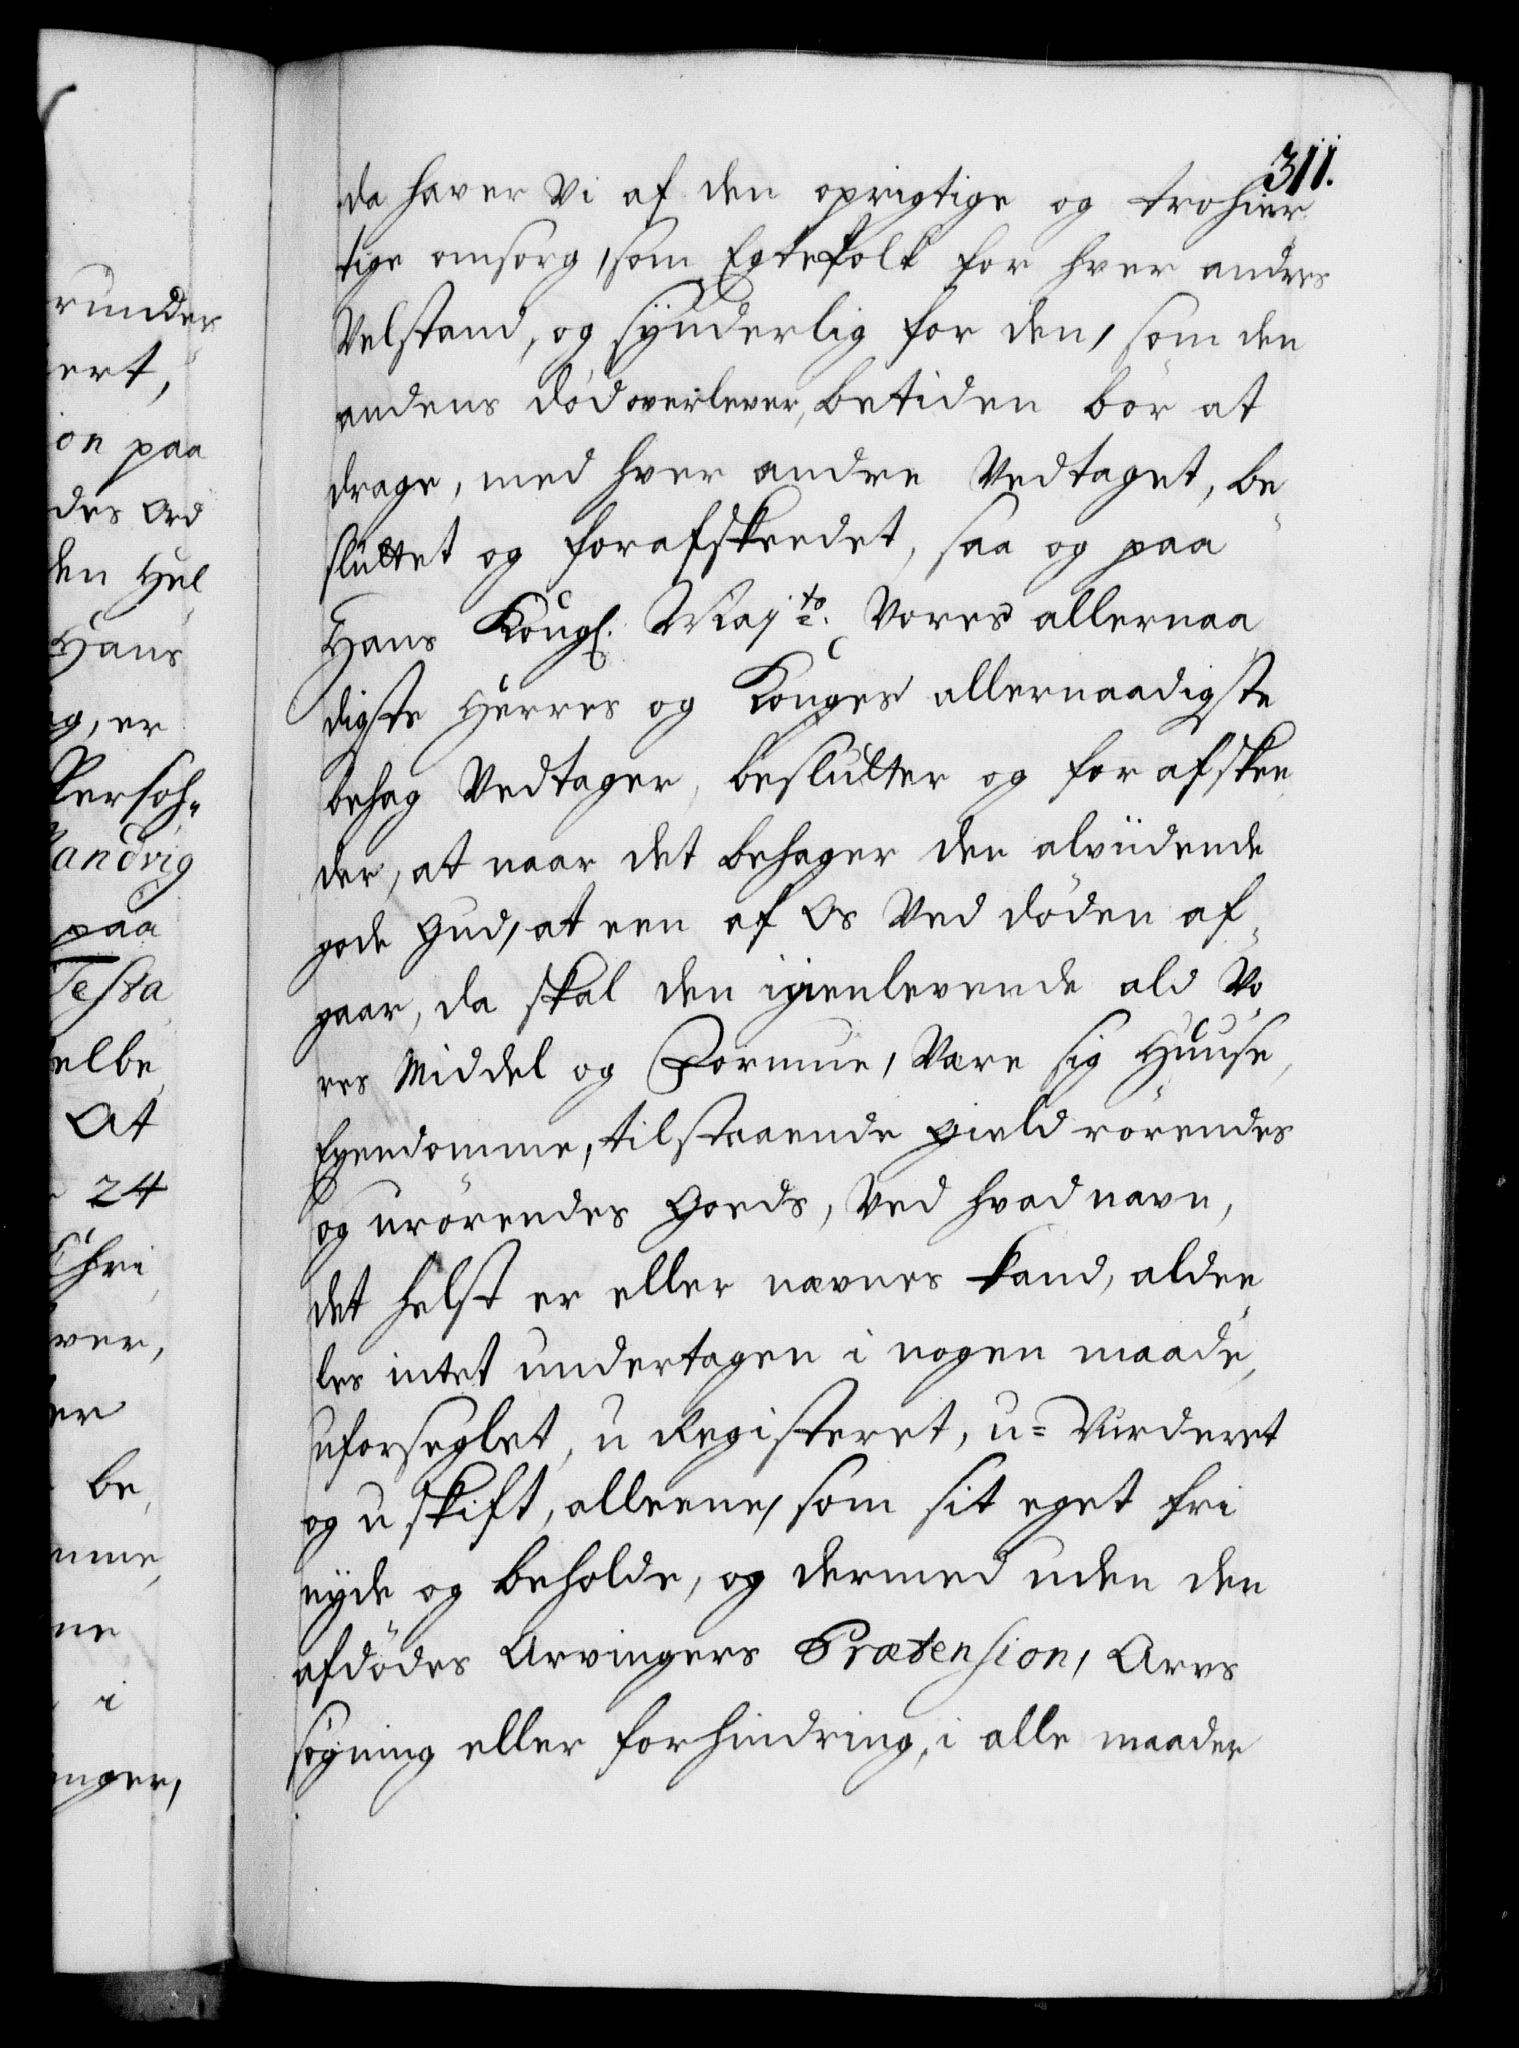 311.
da haver Vi af den oprigtige og trohier
tige omsorg, som Egtefolk for hver andres
Velstand, og synderlig for den, som den
andens død overlever, betiden bør at
drage, med hver andre Vedtaget, be
sluttet og forafskeedet, saa og paa
Hans Kongl. Maj^ts. Vores allernaa
digste Herres og Konges allernaadigste
behag Vedtager, beslutter og forafskee
der, at naar det behager den alviidende
gode Gud, at een af Os Ved døden af¬
gaar, da skal den igienlevende ald Vo
res Middel og Formue, Være sig Huuse,
Eyendomme, tilstaaende gield rørendes
og urørendes Goeds, Ved hvad navn,
det helst er eller nævnes kand, aldee
les intet undertagen i nogen maade,
uforseglet, u Registeret, u= Vurderet
og u skift, alleene, som sit eget fri
nyde og beholde, og dermed uden den
afdødes Arvingers Prætension, Arvs
søgning eller forhindring, i alle maader
runder
ert,
on paa
des Ord
den Hul
Hans
og, er
Persoh=
Sandvig
paa
Testa
elbe
At
24
Chri
ver,
er
be
mme,
ne
i
nger,